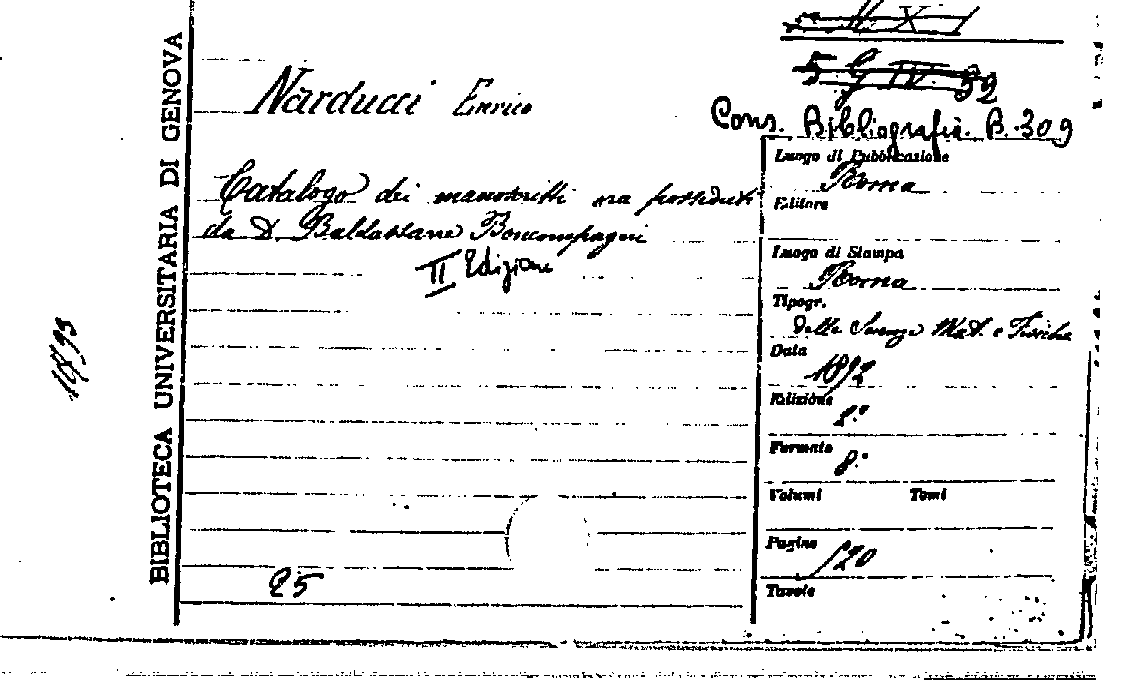 BIBLIOTECA UNIVERSITARIA DI GENOVA
5 G IV 32
Cons. Bibliografia. B. 309
Narducci Enrico
Catalogo dei manoscritti ora posseduti
da D. Baldassarre Boncompagni
II Edizione
25
Luogo di Pubblicazione
Roma
Editore
Luogo di Stampa
Roma
Tipogr.
delle Scienze Mat. e Fisiche
Data
1892
Edizione
2.ª
Formato
8.º
Volumi Tomi
Pagine
520
Tavole